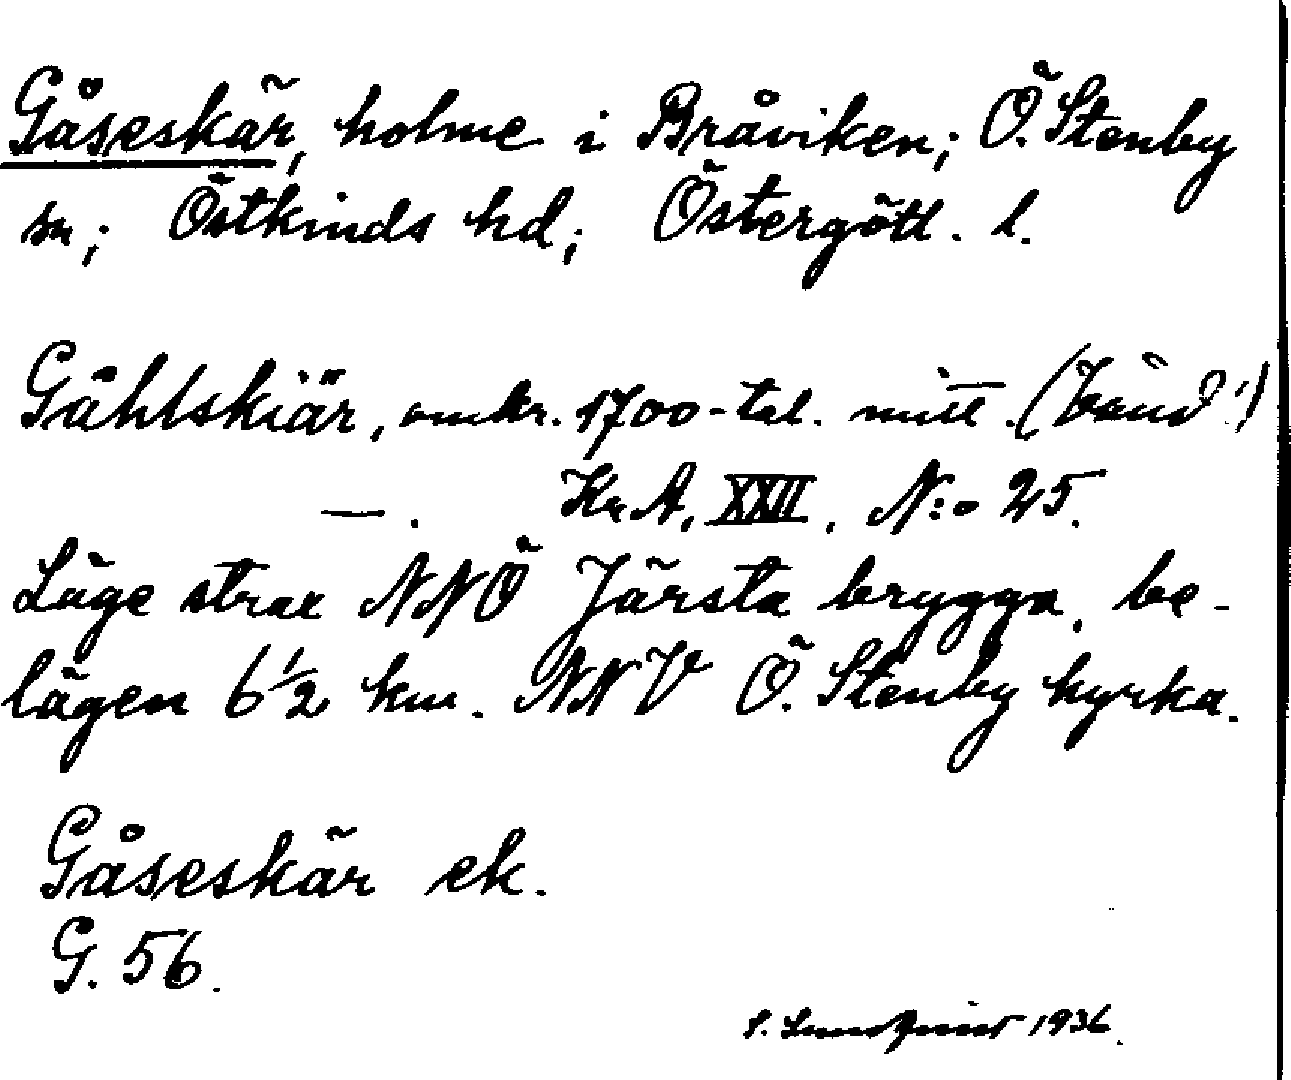 Gåseskär, holme i Bråviken; Ö. Stenby
sn; Östkinds hd; Östergötl. l.
Gåhlskiär, omkr. 1700-tal. mitt.
—. Kr A, XXII, N:o 25.
Läge strax NNÖ Järsta brygga, be-
lägen 6½ km. NNV Ö. Stenby kyrka.
Gåseskär ek.
G. 56.
S. Lundqvist 1936.